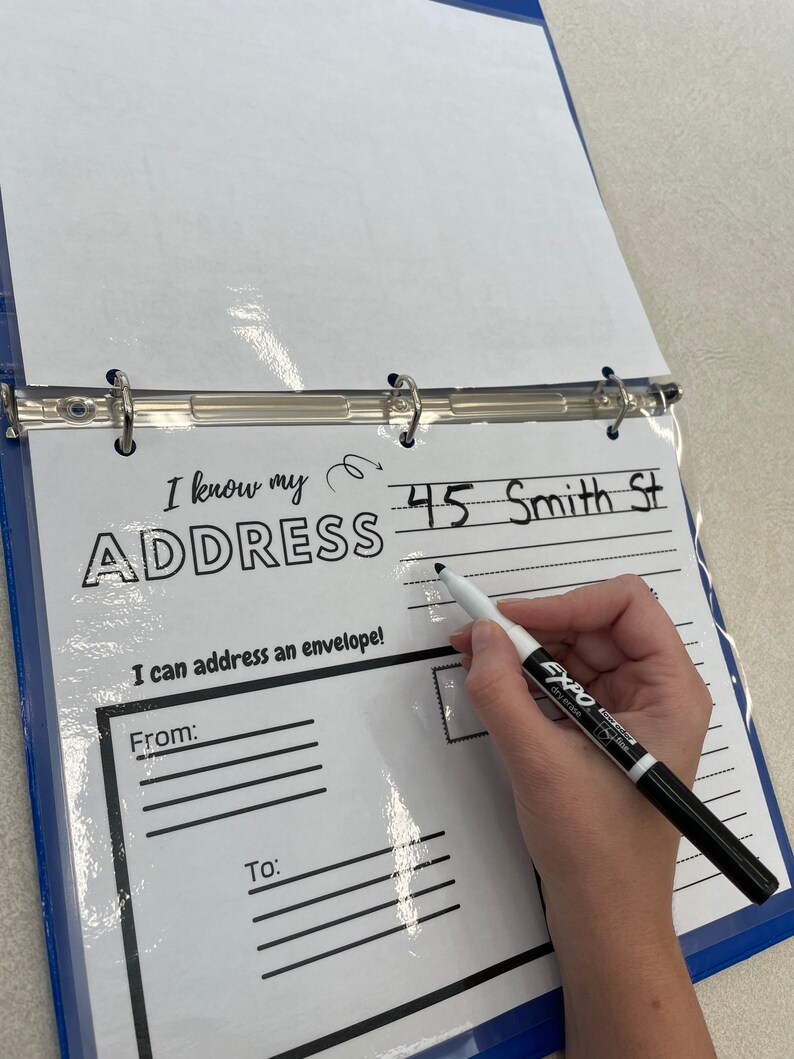 I know my
ADDRESS
45 Smith St
I can address an envelope!
From:
To:
EXPO
dry erase
low odor
fine